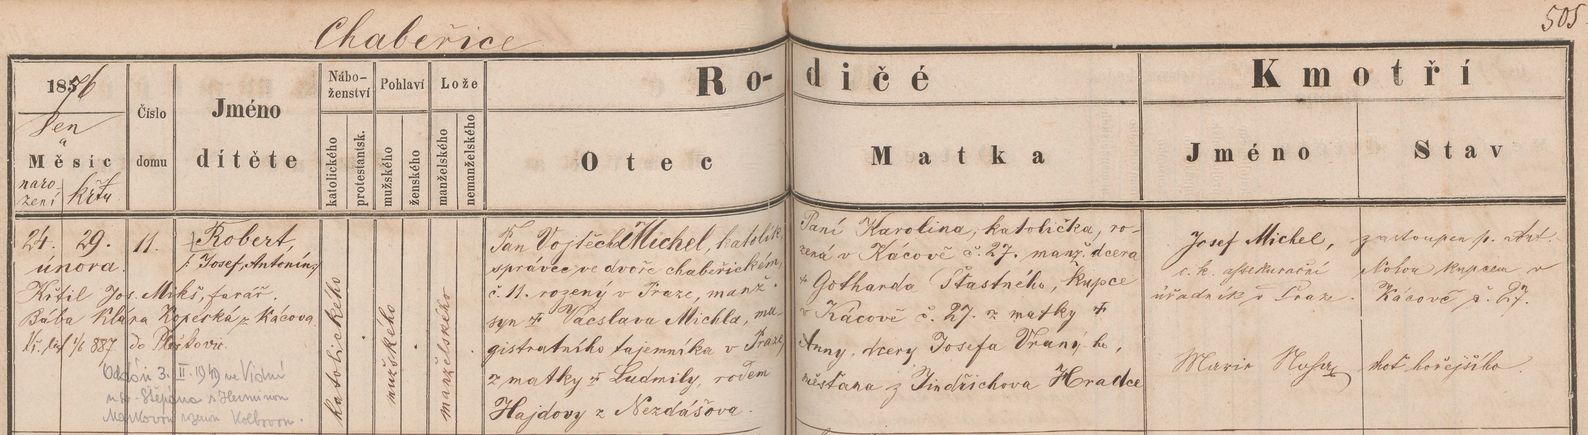 505
Chabeřice
1876
Den
a
Měsíc
naro-
zení
křtu
Číslo
domu
Jméno
dítěte
Nábo-
ženství
katolického
protestantsk.
Pohlaví
mužského
ženského
Lože
manželského
nemanželského
Rodičé
Otec
Matka
Kmotří
Jméno
Stav
24. 29.
února.
11.
Robert,
Josef, Antonín
Křtil Jos. Mikš, farář.
Bába Klára Kopecká z Kácova
887 do
Oddán 3. II. 1919 ve Vídni
u sv. Štěpána s Herminou
katolického
mužského
manželského
Pan Vojtěch Michel, katolík,
správce ve dvoře chabeřickém,
č. 11. rozený v Praze, manž.
syn † Václava Michla, ma-
gistratního tajemníka v Praze,
z matky † Ludmily, rodem
Hajdovy z Nezdášova.
Paní Karolina, katolička, ro-
zená v Kácově č. 27. manž. dcera
† Gotharda Šťastného, kupce
v Kácově č. 27. z matky †
Anny, dcery Josefa
měšťana z Jindřichova Hradce
Josef Michel,
c. k. assekurační
úředník v Praze.
zastoupen p. Ant.
kupcem v
Kácově č. 27.
Marie
choť